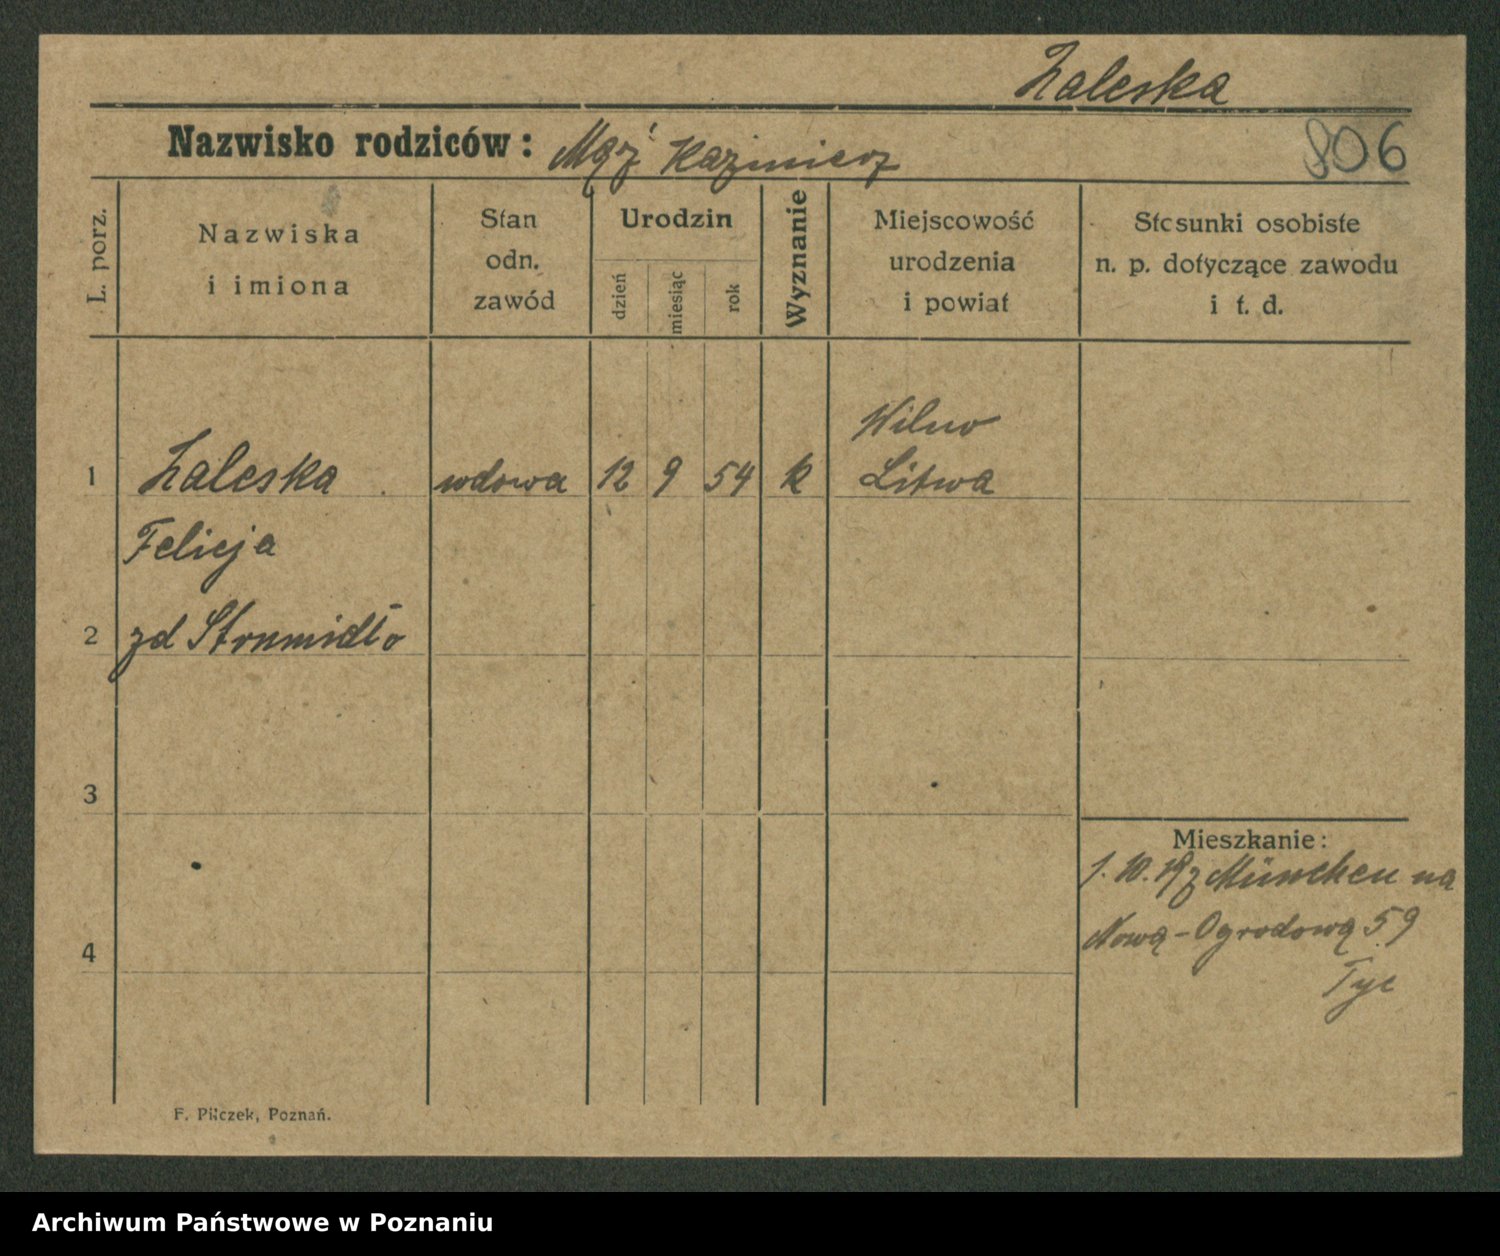 Zaleska
Nazwisko rodziców: Mąż Kazimierz
806
L. porz.
Nazwiska
i imiona
Stan
odn.
zawód
Urodzin
dzień
miesiąc
rok
Wyznanie
Miejscowość
urodzenia
i powiat
Stosunki osobiste
n. p. dotyczące zawodu
i t. d.
Wilno
1 Zaleska wdowa 12 9 54 k Litwa
Felicja
2 zd Strumidło
3
Mieszkanie:
1. 10. 19 z München na
Nową-Ogrodową 59
4
Tyc
F. Pilczek, Poznań.
Archiwum Państwowe w Poznaniu